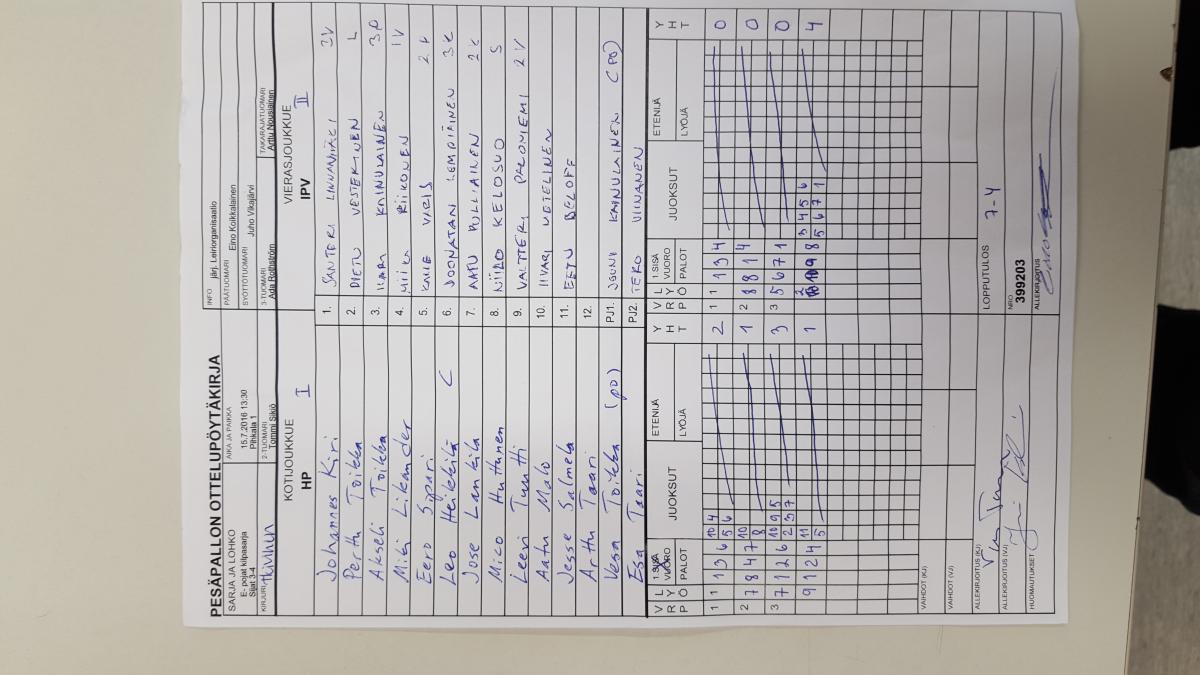 PESÄPALLON OTTELUPÖYTÄKIRJA
INFO järj. Leiriorganisaatio
SARJA JA LOHKO
E- pojat kilpasarja
Sijat 3-4
AIKA JA PAIKKA
15.7.2016 13:30
Pihkala 1
PÄÄTUOMARI Eino Koikkalainen
SYÖTTÖTUOMARI Juho Vikajärvi
KIRJURI
2-TUOMARI Tommi Sikiö
3-TUOMARI Ada Rothström
TAKARAJATUOMARI Arttu Nousiainen
KOTIJOUKKUE
HP I
VIERASJOUKKUE
IPV II
Johannes Kiri 1. SANTERI LINNANMÄKI 3V
Perttu Toikka 2. PIETU VESTERINEN L
Akseli Toikka 3. ILARI KAINULAINEN 3P
Miki Likander 4. MIIKA RIIKONEN 1V
Eero Sipari 5. KALLE VARIS 2P
Leo Heikkilä C 6. JOONATAN LEMPIÄINEN 3K
Jose Lankila 7. AATU PULLIAINEN 2K
Mico Huttunen 8. NIILO KELOSUO S
Leevi Tuutti 9. VALTTERI PALONIEMI 2V
Aatu Malo 10. IIVARI VOTELINEN
Jesse Salmela 11. EETU BELOFF
Arttu Taari 12.
Vesa Toikka (PO) PJ1. JOUNI KAINULAINEN (PO)
Esa Taari PJ2. TERO VIINANEN
V R L Y P Ö 1.SISÄ VUORO PALOT JUOKSUT ETENIJÄ LYÖJÄ Y H T
V R L Y P Ö 1.SISÄ VUORO PALOT JUOKSUT ETENIJÄ LYÖJÄ Y H T
1 1 1 3 6 10 4 5 6 2
1 1 1 3 4 0
2 7 8 4 7 10 8 1
2 8 8 1 4 0
3 7 1 2 6 10 9 5 2 3 7 3
3 5 6 7 1 0
9 1 2 4 11 5 1
9 8 3 4 5 6 5 6 7 1 4
VAIHDOT (KJ)
VAIHDOT (VJ)
ALLEKIRJOITUS (KJ)
LOPPUTULOS 7-4
ALLEKIRJOITUS (VJ)
NRO
399203
HUOMAUTUKSET
ALLEKIRJOITUS